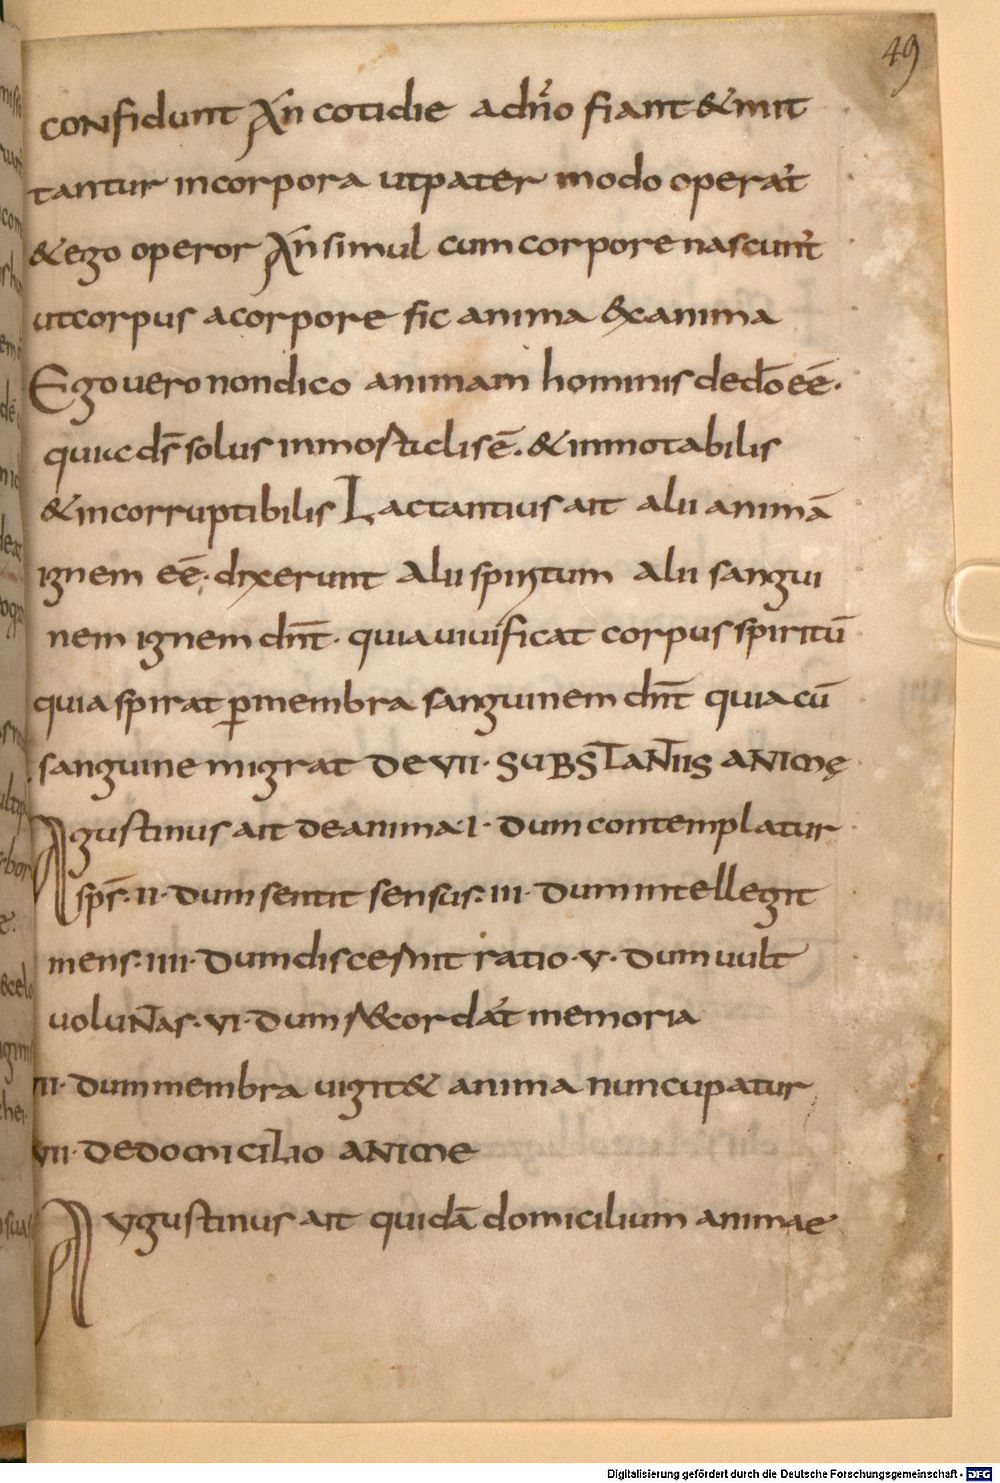 49
confidunt An cotidie a dn̄o fiant & mit
tantur in corpora ut pater modo operat᷑
& ego operor An simul cum corpore nascunt᷑
ut corpus a corpore sic anima & anima
Ego uero non dico animam hominis de dō eē.
quia ds̄ solus inmost ē. & inmotabilis
& incorruptibilis Lactantius ait alii animā
ignem eē. dixerunt alii spiritum alii sangui
nem ignem dn̄t. quia uiuificat corpus spiritū
quia spirat ꝑ membra sanguinem dn̄t quia cū
sanguine migrat DE VII. SUBSTANTIIS ANIMĘ
Agustinus ait de anima. I. dum contemplatur
sps̄. II. dum sentit sensus. III. dum intellegit
mens. IIII. dum discernit ratio. V. dum uult
uoluntas. VI. dum r&cordat᷑ memoria
VII. dum membra uigit& anima nuncupatur
VIII. DE DOMICILIO ANIME
Augustinus ait quidā domicilium animae
Digitalisierung gefördert durch die Deutsche Forschungsgemeinschaft - DFG